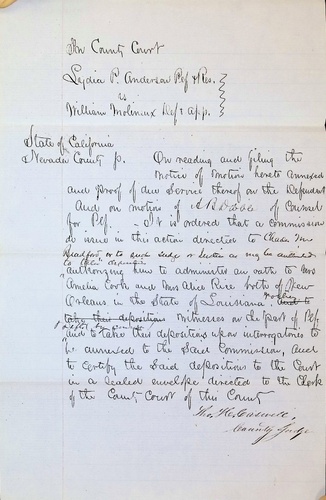 In County Court
Lydia P. Anderson Plf & Res.
vs
William Molineux Def & App.
State of California
Nevada County ss. On reading and filing the
Notice of Motion hereto annexed
and Proof of due Service thereof on the Defendant
And on motion of A. B. Dibble of Counsel
for Plf. - It is ordered that a commission
do issue in this action directed to Charles
Bradford, or to such Judge or Justice as may be
authorizing him to administer an oath to Mrs
Amelia Cook and Mrs Alice Rice both of New
Orleans in the State of Louisiana and to
take their depositions witnesses on the part of Plf.
and to take their depositions upon interrogatories to
be annexed to the Said Commission, and
to certify the Said depositions to the Court
in a sealed envelope directed to the Clerk
of the County Court of this County
Thos. H. Caswell,
County Judge